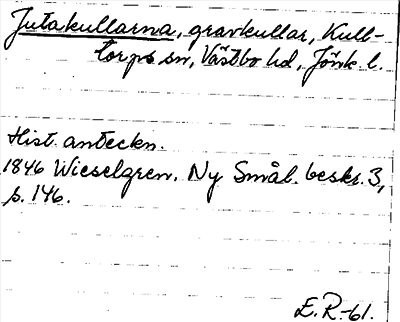 Jutakullarna, gravkullar, Kull-
torps sn, Västbo hd, Jönk. l.
Hist. anteckn.
1846 Wieselgren. Ny Smål. beskr. 3,
s. 146.
E. R.-61.